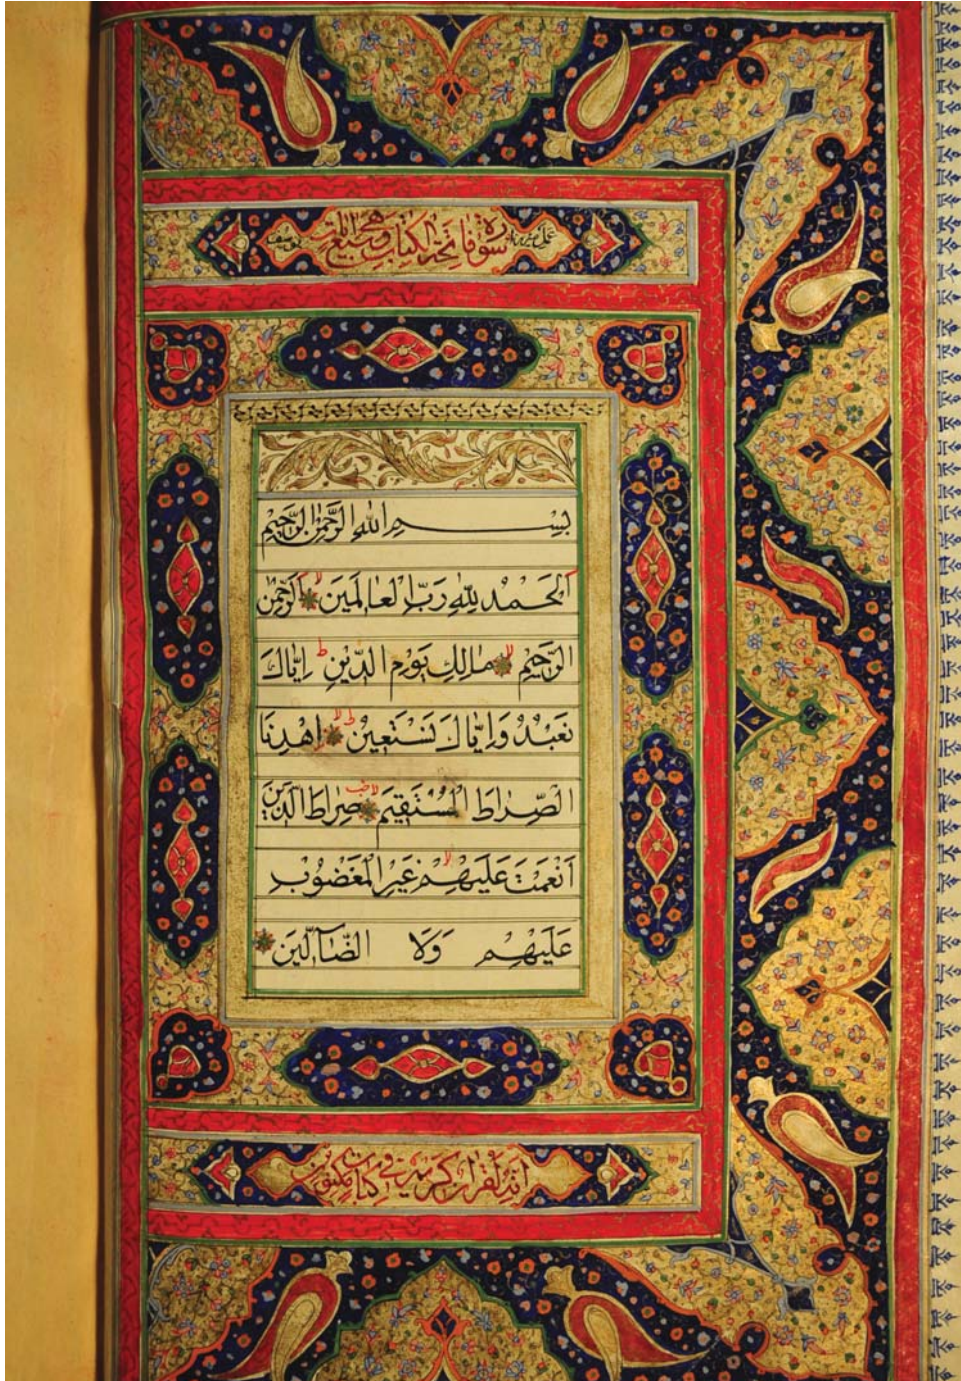 سورة فاتحة الكتاب وهي سبع آيات
بِسْمِ اللهِ الرَّحْمٰنِ الرَّحِيْمِ
اَلْحَمْدُ لِلّٰهِ رَبِّ الْعَالَمِيَنَ لا اَلرَّحْمٰنِ
الرَّحِيْمِ لا مَالِكِ يَوْمِ الدِّيْنِ ط اِيَّاكَ
نَعْبُدُ وَاِيَّاكَ نَسْتَعِيْنُ ط اِهْدِنَا
الصِّرَاطَ الْمُسْتَقِيْمَ لا صِرَاطَ الَّذِيْنَ
اَنْعَمْتَ عَلَيْهِمْ لا غَيْرِ الْمَغْضُوْبِ
عَلَيْهِمْ وَلَا الضَّآلِّيْنَ
انه لقران كريم في كتاب مكنون